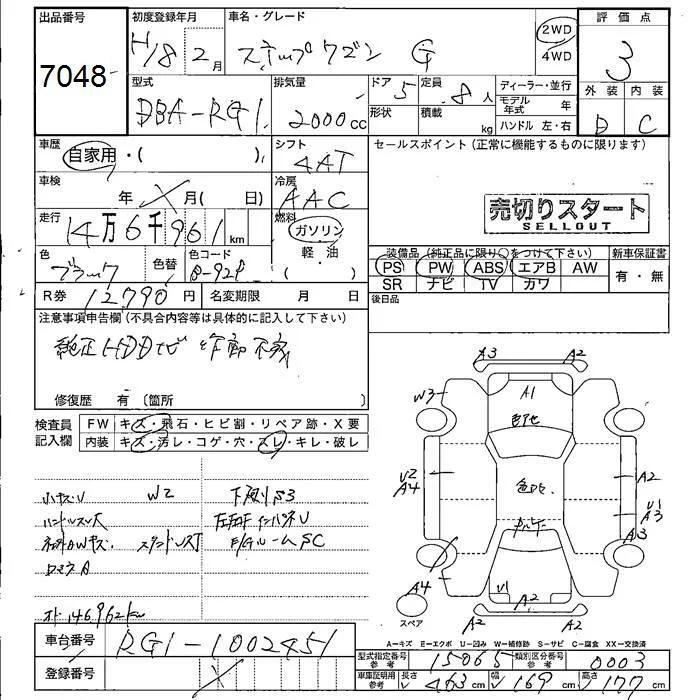 出品番号
7048
初度登録年月
H18 2月
車名・グレード
ステップワゴン G
2WD
4WD
評価点
3
外装 内装
D C
型式
DBA-RG1
排気量
2000cc
ドア 5
形状
定員 8人
積載 kg
ディーラー・並行
モデル年式 年
ハンドル 左・右
車歴
自家用・( ),
シフト
4AT
セールスポイント (正常に機能するものに限ります)
車検
年 月( 日)
冷房
AAC
走行
14万6千961km
燃料
ガソリン
軽・油
売切りスタート
SELLOUT
色
ブラック
色替
色コード
B-92P
装備品 (純正品に限り○をつけて下さい)
PS PW ABS エアB AW
SR ナビ TV カワ
新車保証書
有・無
R券 12790円
名変期限 月 日
後日品
注意事項申告欄(不具合内容等は具体的に記入して下さい)
純正HDDナビ 作動不良
修復歴 有 〔箇所
検査員
記入欄
FW キズ・飛石・ヒビ割・リペア跡・X要
内装 キズ・汚レ・コゲ・穴・スレ・キレ・破レ
A3 A2
W3 A1
色アセ
U2
A4
A2
U1
A3
A3
A4
U1 A2
A2 A2
スペア
小キズ・U W2 下廻りS3
オドメーター 146962km
車台番号 RG1-1002451
登録番号
A=キズ E=エクボ U=凹み W=補修跡 S=サビ C=腐食 XX=交換済
型式指定番号 参考 15065 類別区分番号 参考 0003
車庫証明用 参考 長さ 463cm 幅 169cm 高さ 177cm